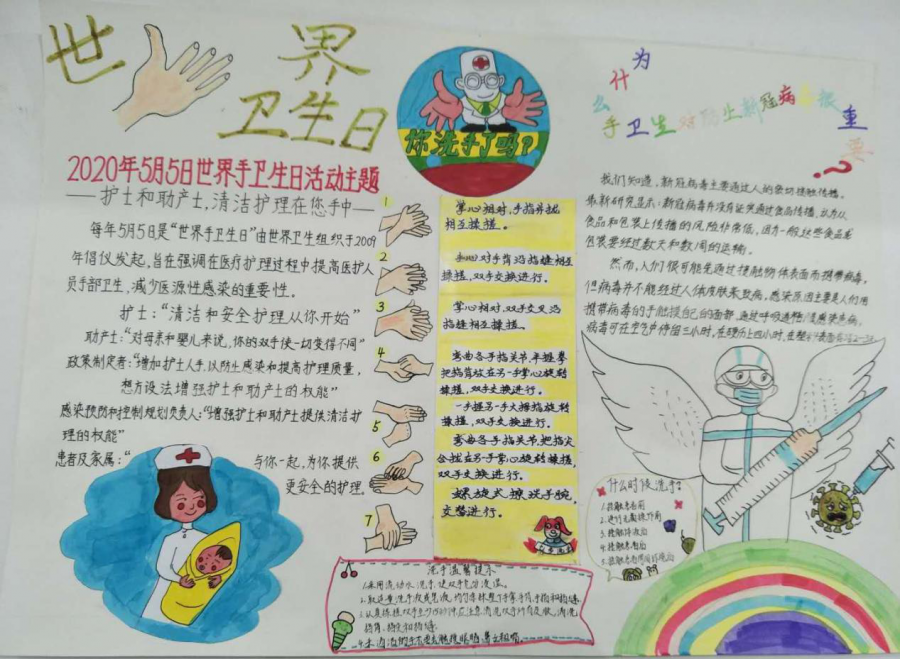 世界
卫生日
你洗手了吗?
为什么
手卫生对防止新冠病毒很重要?
2020年5月5日世界手卫生日活动主题
——护士和助产士,清洁护理在您手中——
每年5月5日是“世界手卫生日”由世界卫生组织于2009
年倡仪发起,旨在强调在医疗护理过程中提高医护人
员手部卫生,减少医源性感染的重要性。
护士:“清洁和安全护理从你开始”
助产士:“对母亲和婴儿来说,你的双手使一切变得不同”
政策制定者:“增加护士人手,以防止感染和提高护理质量,
想方设法增强护士和助产士的权能”
感染预防和控制规划负责人:“增强护士和助产士提供清洁护
理的权能”
患者及家属:“
与你一起,为你提供
更安全的护理。
1
2
3
4
5
6
7
掌心相对,手指并拢
相互揉搓。
手心对手背沿指缝相互
揉搓,双手交换进行。
掌心相对,双手交叉沿
指缝相互揉搓。
弯曲各手指关节,半握拳
把指背放在另一手掌心旋转
揉搓,双手交换进行。
一手握另一手大拇指旋转
揉搓,双手交换进行。
弯曲各手指关节,把指尖
合拢在另一手掌心旋转揉搓,
双手交换进行。
螺旋式擦洗手腕,
交替进行。
我们知道,新冠病毒主要通过人的密切接触传播。
最新研究显示:新冠病毒并没有证实通过食品传播,认为从
食品和包装上传播的风险非常低,因为一般这些食品或
包装要经过数天和数周的运输。
然而,人们很可能是通过接触物体表面而携带病毒。
但病毒并不能经过人体皮肤来致病,感染原因主要是人们用
携带病毒的手触摸自己的面部,通过呼吸道
病毒可在空气中停留三小时,在
什么时候洗手?
1.接触患者前
2.进行无菌操作前
3.接触体液后
4.接触患者后
5.接触患者周围环境后
洗手温馨提示
1.采用流动水洗手,使双手充分浸湿。
2.取适量洗手液或皂液,均匀涂抹整个手掌手背手指和指缝
3.认真揉搓双手至少15秒钟,应注意清洗双手所有皮肤,清洗
指背、指尖和指缝。
4.未清洁的手不要去触摸眼睛鼻子和嘴。